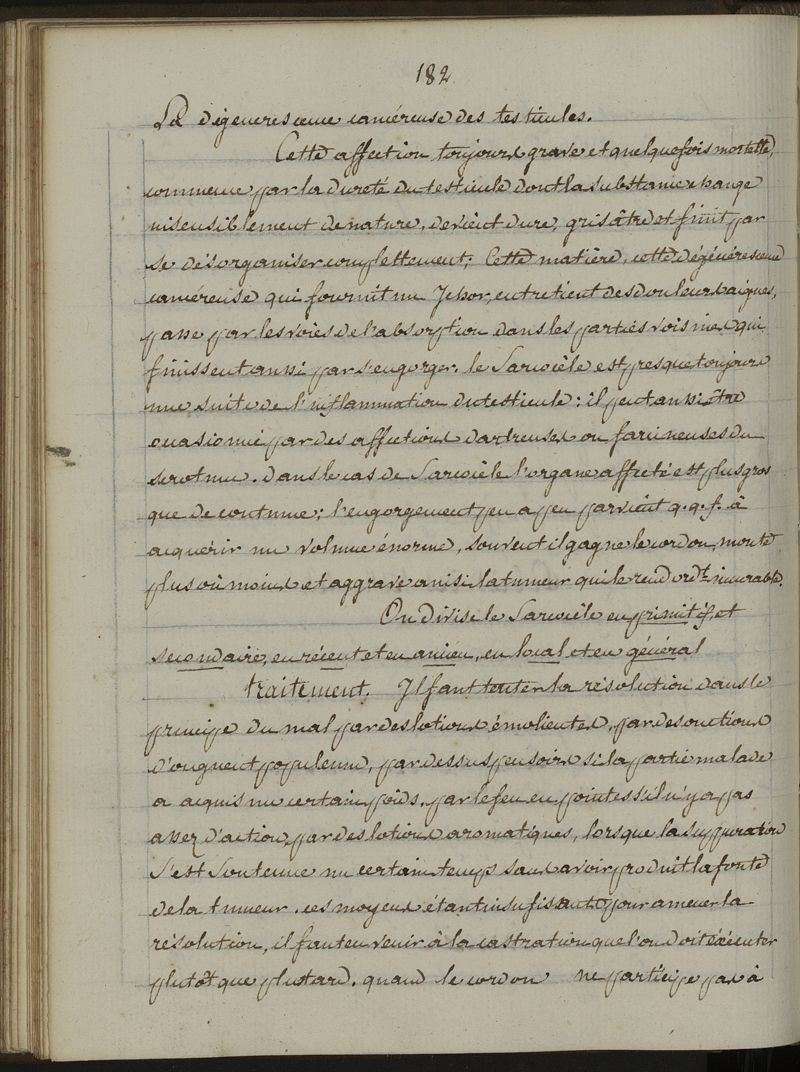 182
La dégenerescence cancéreuse des testicules.
Cette affection, toujours grave et quelquefois mortelle,
commence par la dureté du testicule dont la substance change
insensiblement de nature, devient dure, grisâtre et finit par
se désorganiser complettement; Cette matière, cette dégénérescence
cancéreuse qui fournit un Ichor, entretient des douleurs aigues,
passe par les voies de l'absorption dans les parties voisines qui
finissent aussi par s'engorger. le Sarcocèle est presque toujours
une suite de l'inflammation du testicule: il peut aussi être
occasionné par des affections dartreuses ou farineuses du
scrotum. dans le cas de Sarcocèle l'organe affecté est plus gros
que de coutume; l'engorgement peu a peu parvient q.q.f. à
acquérir un volume énorme, souvent il gagne le cordon, monte
plus où moins et aggrave ainsi la tumeur qui le rend ordt. incurable.
On divise le Sarcocèle en primitif, et
secondaire, en récent et en ancien, en local et en général
traitement. Il faut tenter la résolution dans le
principe du mal par des lotions émolientes, par des onctions
d'onguent populeum, par des suspensoirs si la partie malade
a acquis un certain poids, par le feu en pointes s'il n'y a pas
assez d'action, par des lotions aromatiques, lorsque la suppuration
s'est Soutenue un certain temps sans avoir produit la fonte
de la tumeur. ces moyens étant insufisants pour amener la
résolution, il faut en venir à la castration que l'on doit éxécuter
plutôt que plus tard. quand le cordon ne participe pas à